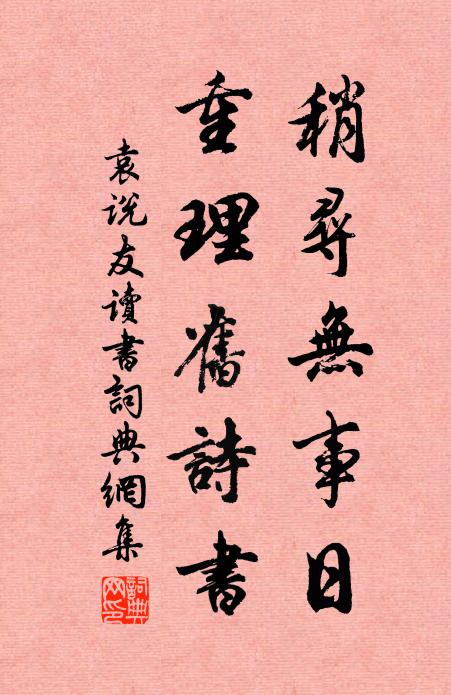 稍尋無事日
重理舊詩書
袁说友讀書詞典網集
詞典網印